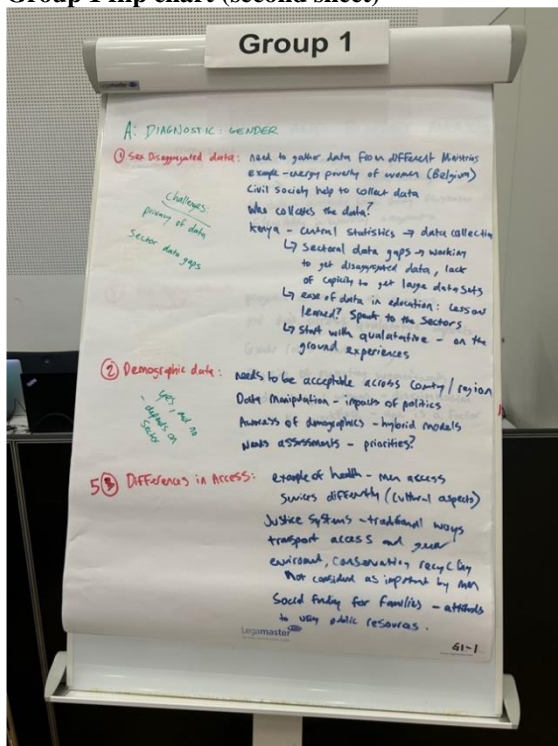 Group 1 flip chart (second sheet)
Group 1
Legamaster
A: DIAGNOSTIC: GENDER
① Sex Disaggregated data: need to gather data from different Ministries
example - energy poverty of women (Belgium)
Civil society help to collect data
Who collates the data?
Kenya - central statistics → data collection
↳ sectoral data gaps → working
to get disaggregated data, lack
of capicity to get large data sets
↳ ease of data in education: Lesson
learned? Speak to the sectors
↳ start with qualatative - on the
ground experiences
Challenges:
privacy of data
Sector data gaps
② Demographic data: Needs to be acceptable across county/region
Data Manipulation - impacts of politics
Awareness of demographics - hybrid models
Needs assessments - priorities?
yes, and no
- depends on
Sector
5③ Differences in Access: example of health - men access
services differently (cultural aspects)
Justice Systems - traditional ways
transport access and
enviroment, conservation, recycling
Not considered as important by men
Social funding for families - attitudes
to using public resources.
Legamaster
G1-1